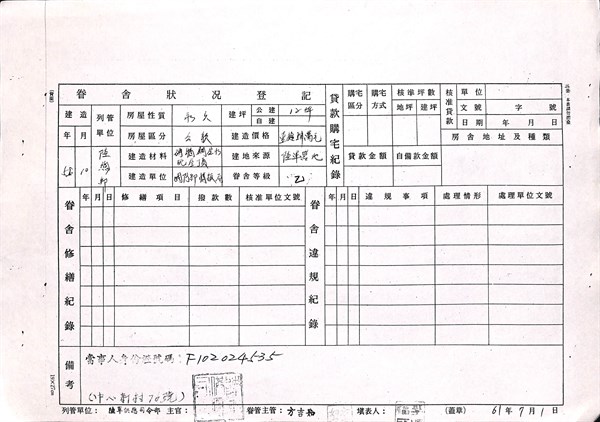 眷舍狀況登記
建造 年 月
列管單位
房屋性質 永久
建坪 公建 自建 12坪
房屋區分 公教
建造價格
建造材料
建地來源
建造單位
眷舍等級 乙
56 10
貸款購宅紀錄
購宅區分 購宅方式 核準坪數 地坪 建坪
核准貸款 單位
文號 字 號
日期 年 月 日
房舍地址及種類
貸款金額 自備款金額
眷舍修繕紀錄
年 月 日 修繕項目 撥款數 核准單位文號
眷舍違規紀錄
年 月 日 違規事項 處理情形 處理單位文號
備考
當事人身份證號碼:F102024535
(中心新村70號)
列管單位: 陸軍供應司令部 主官: 眷管主管: 填表人: (蓋章) 61年7月1日